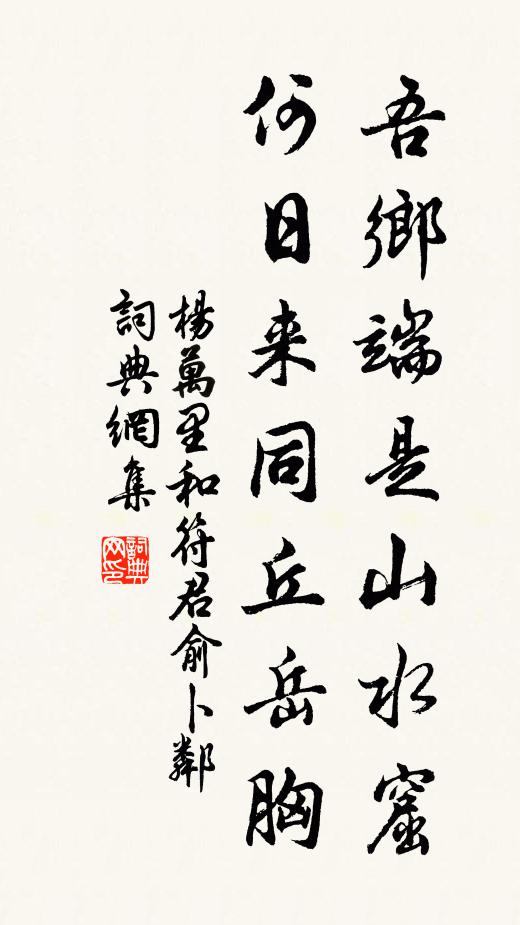 吾鄉端是山水窟
何日来同丘岳胸
楊萬里和符君俞卜鄰
詞典網集
詞典网印